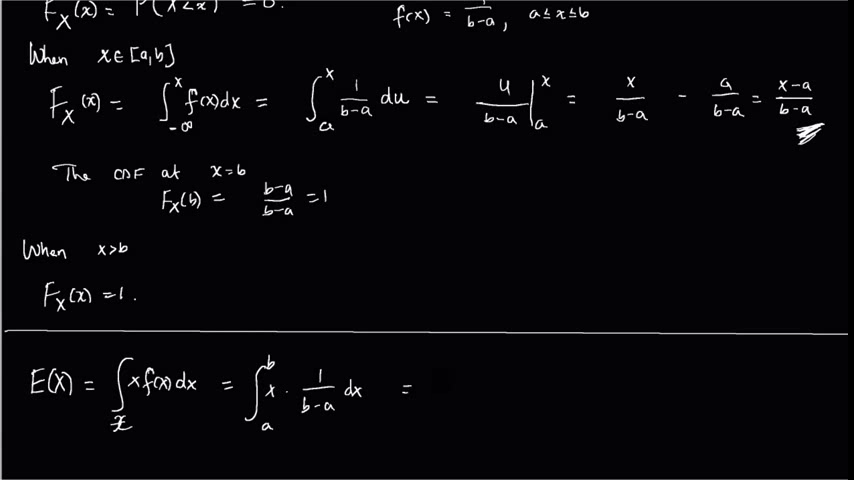 F_X(x) = P(X<x) = 0.
f(x) = 1/(b-a), a ≤ x ≤ b
When x ∈ [a,b]
F_X(x) = ∫_{-∞}^{x} f(x)dx = ∫_a^x 1/(b-a) du = u/(b-a) |_a^x = x/(b-a) - a/(b-a) = (x-a)/(b-a)
The CDF at x=b
F_X(b) = (b-a)/(b-a) = 1
When x>b
F_X(x) = 1.
E(X) = ∫_x x f(x) dx = ∫_a^b x · 1/(b-a) dx =